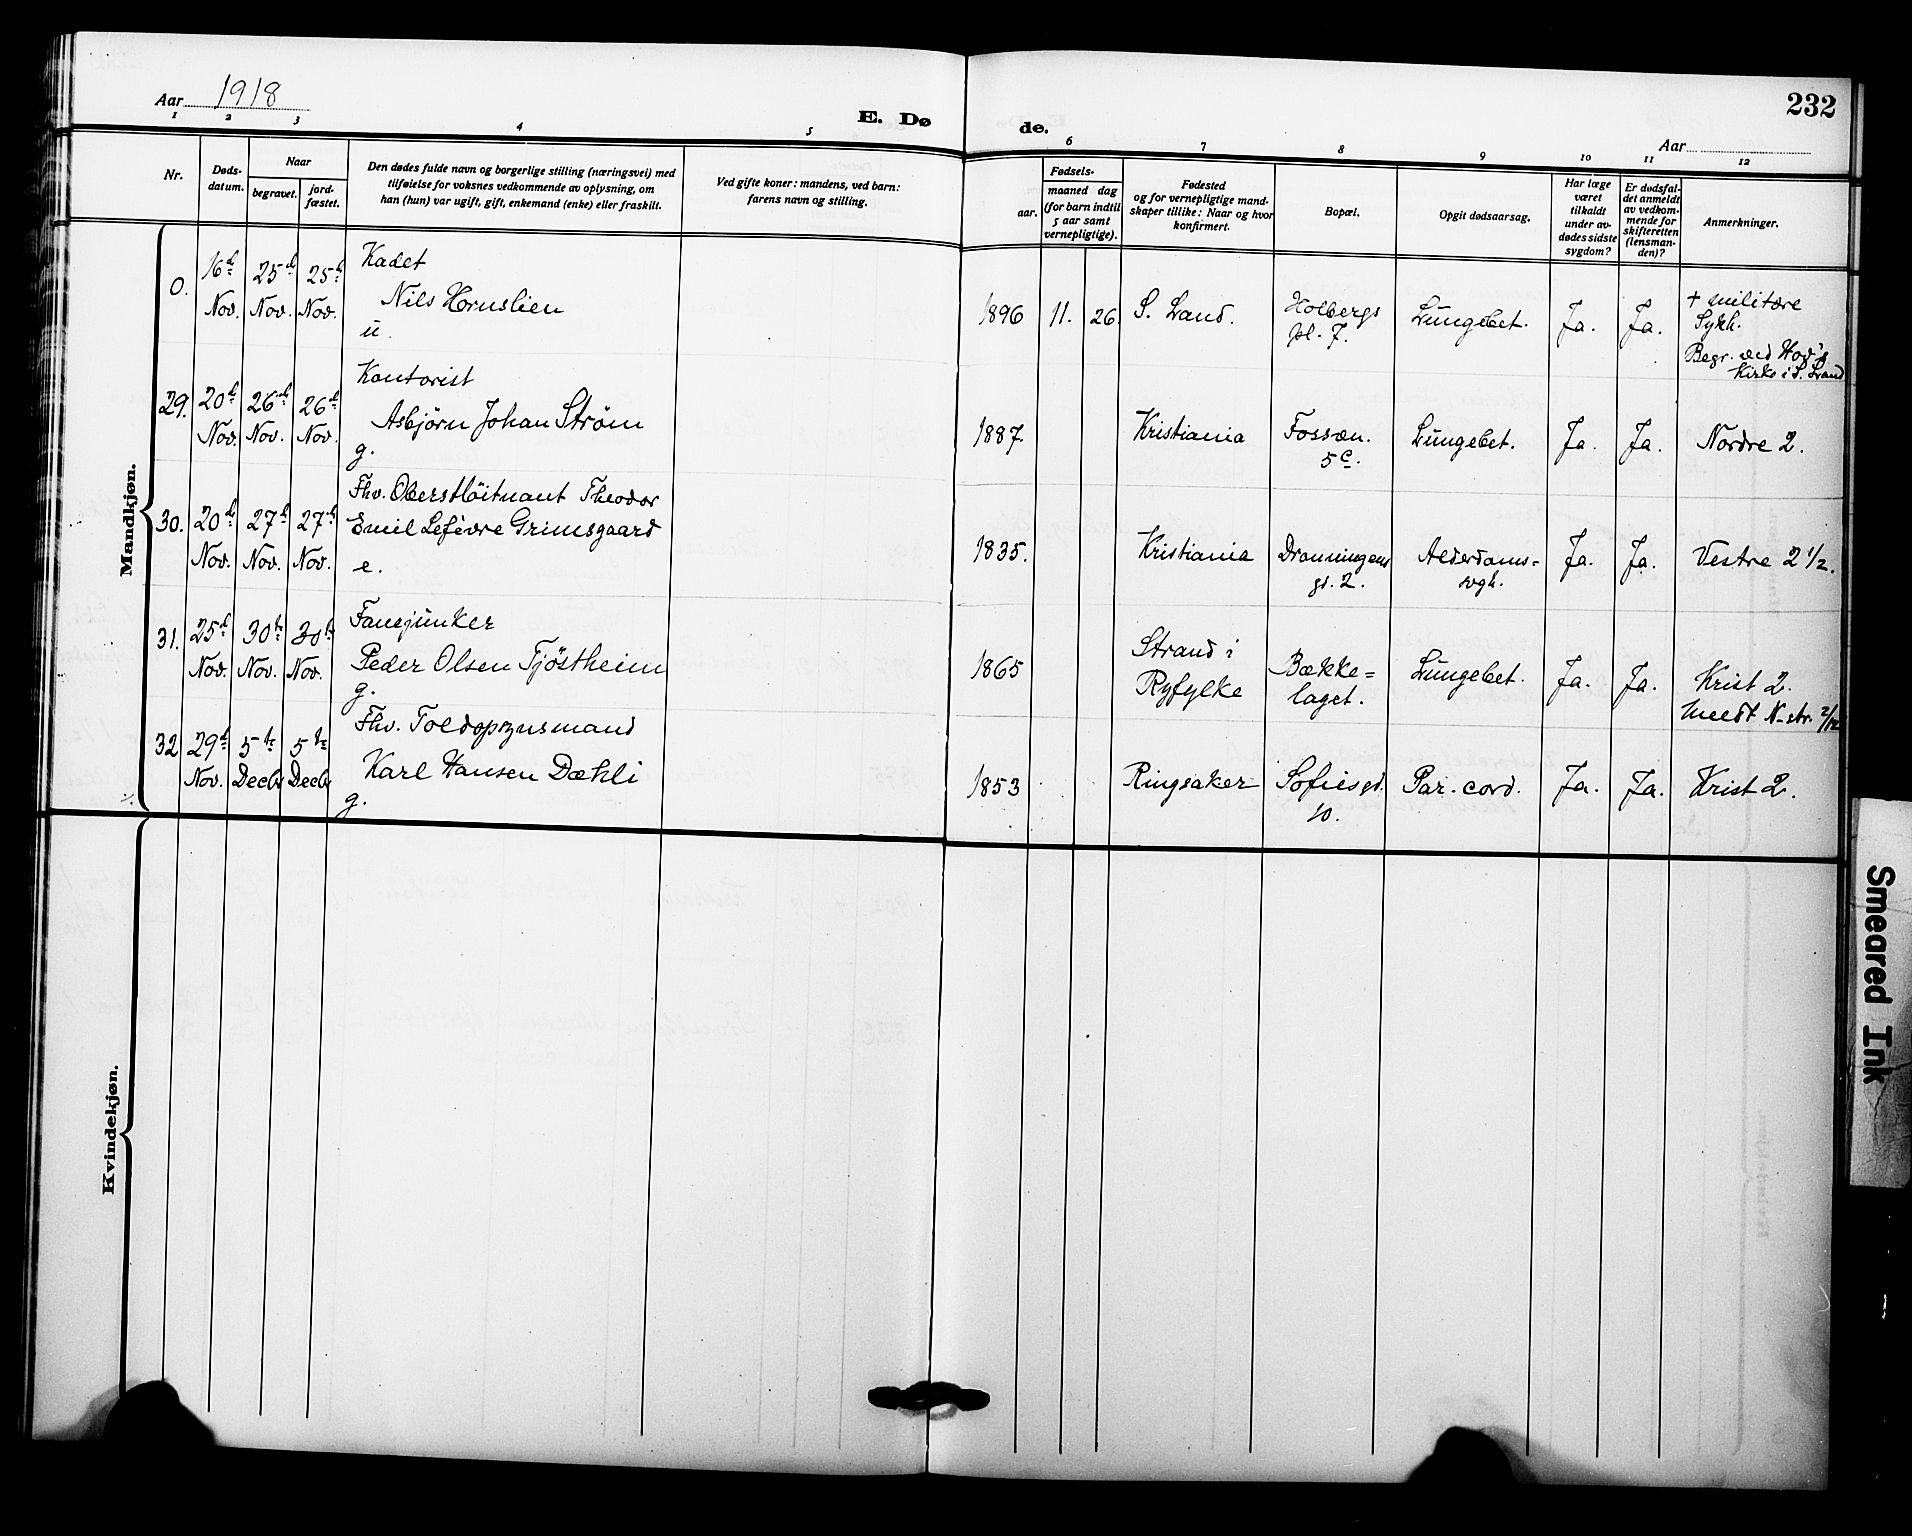 Aar 1918
E. Dø
de.
232
Aar
1 2 3 4 5 6 7 8 9 10 11 12
Nr.
Døds-
datum.
Naar
begravet.
jord-
fæstet.
Den dødes fulde navn og borgerlige stilling (næringsvei) med
tilføielse for voksnes vedkommende av oplysning, om
han (hun) var ugift, gift, enkemand (enke) eller fraskilt.
Ved gifte koner: mandens, ved barn:
farens navn og stilling.
Fødsels-
aar.
maaned dag
(for barn indtil
5 aar samt
vernepligtige).
Fødested
og for vernepligtige mand-
skaper tillike: Naar og hvor
konfirmert.
Bopæl.
Opgit dødsaarsag.
Har læge
været
tilkaldt
under av-
dødes sidste
sygdom?
Er dødsfal-
det anmeldt
av vedkom-
mende for
skifteretten
(lensman-
den)?
Anmerkninger.
Mandkjøn.
0.
16de
Nov.
25de
Nov.
25de
Nov.
Kadet
Nils Hornslien
u.
1896 11. 26.
S. Land.
Holbergs
pl. 7.
Lungebet.
Ja.
Ja.
+ militære
Sykh.
Begr. ved Hov's
Kirke i S. Land
29.
20de
Nov.
26de
Nov.
26de
Nov.
Kontorist
Asbjørn Johan Strøm
g.
1887.
Kristiania
Fossvn.
5c.
Lungebet.
Ja.
Ja.
Nordre 2.
30.
20de
Nov.
27de
Nov.
27de
Nov.
Fhv. Oberstløitnant Theodor
Emil Lefévre Grimsgaard
e.
1835.
Kristiania
Dronningens
gd. 2.
Alderdoms-
svgh.
Ja.
Ja.
Vestre 2 1/2.
31.
25de
Nov.
30te
Nov.
30te
Nov.
Fanejunker
Peder Olsen Tjöstheim
g.
1865
Strand i
Ryfylke
Bække=
laget.
Lungebet.
Ja.
Ja.
Krist 2.
Meldt N-str. 2/12
32
29de
Nov.
5te
Decbr
5te
Decbr
Fhv. Toldopsynsmand
Karl Hansen Dæhli
g.
1853
Ringsaker
Sofiesgd.
10.
Par. cord.
Ja.
Ja.
Krist 2.
Kvindekjøn.
Smeared Ink